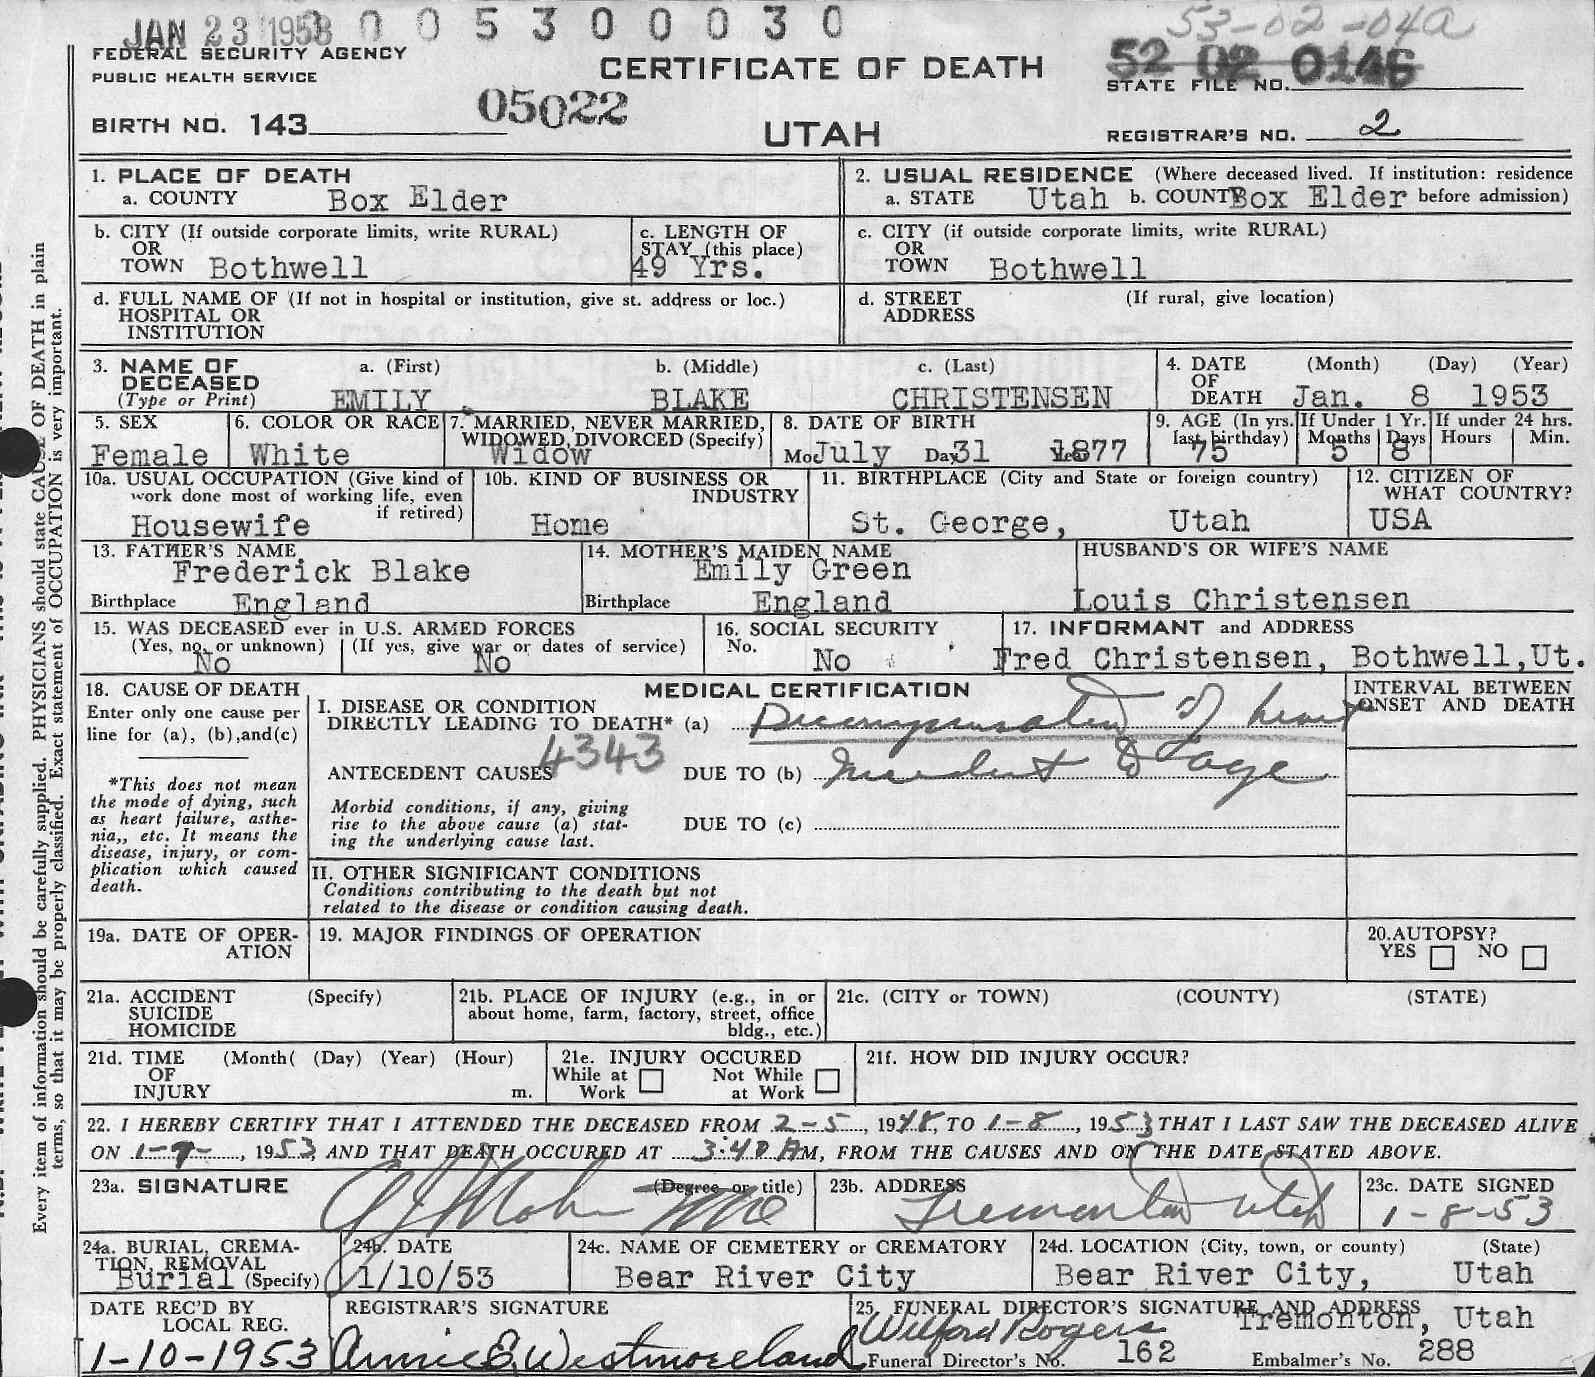 JAN 23 1953 0 0 5 3 0 0 0 3 0
53-02-04a
FEDERAL SECURITY AGENCY
PUBLIC HEALTH SERVICE
CERTIFICATE OF DEATH
52 02 0146
STATE FILE NO.
BIRTH NO. 143
05022
UTAH
REGISTRAR'S NO. 2
1. PLACE OF DEATH
a. COUNTY Box Elder
2. USUAL RESIDENCE (Where deceased lived. If institution: residence
a. STATE Utah b. COUNTY Box Elder before admission)
b. CITY (If outside corporate limits, write RURAL)
OR
TOWN Bothwell
c. LENGTH OF
STAY (this place)
49 Yrs.
c. CITY (if outside corporate limits, write RURAL)
OR
TOWN Bothwell
d. FULL NAME OF (If not in hospital or institution, give st. address or loc.)
HOSPITAL OR
INSTITUTION
d. STREET (If rural, give location)
ADDRESS
3. NAME OF
DECEASED
(Type or Print)
a. (First) b. (Middle) c. (Last)
EMILY BLAKE CHRISTENSEN
4. DATE (Month) (Day) (Year)
OF
DEATH Jan. 8 1953
5. SEX
Female
6. COLOR OR RACE
White
7. MARRIED, NEVER MARRIED,
WIDOWED, DIVORCED (Specify)
Widow
8. DATE OF BIRTH
Mo July Day 31 1877
9. AGE (In yrs.
last birthday)
75
If Under 1 Yr.
Months Days
5 8
If under 24 hrs.
Hours Min.
10a. USUAL OCCUPATION (Give kind of
work done most of working life, even
if retired)
Housewife
10b. KIND OF BUSINESS OR
INDUSTRY
Home
11. BIRTHPLACE (City and State or foreign country)
St. George, Utah
12. CITIZEN OF
WHAT COUNTRY?
USA
13. FATHER'S NAME
Frederick Blake
Birthplace England
14. MOTHER'S MAIDEN NAME
Emily Green
Birthplace England
HUSBAND'S OR WIFE'S NAME
Louis Christensen
15. WAS DECEASED ever in U.S. ARMED FORCES
(Yes, no, or unknown) (If yes, give war or dates of service)
No No
16. SOCIAL SECURITY
No.
No
17. INFORMANT and ADDRESS
Fred Christensen, Bothwell,Ut.
18. CAUSE OF DEATH
Enter only one cause per
line for (a), (b),and(c)
*This does not mean
the mode of dying, such
as heart failure, asthe-
nia,, etc. It means the
disease, injury, or com-
plication which caused
death.
MEDICAL CERTIFICATION
I. DISEASE OR CONDITION
DIRECTLY LEADING TO DEATH* (a) Decompensation of heart
4343
ANTECEDENT CAUSES DUE TO (b) Incident to age
Morbid conditions, if any, giving
rise to the above cause (a) stat-
ing the underlying cause last.
DUE TO (c)
INTERVAL BETWEEN
ONSET AND DEATH
II. OTHER SIGNIFICANT CONDITIONS
Conditions contributing to the death but not
related to the disease or condition causing death.
19a. DATE OF OPER-
ATION
19. MAJOR FINDINGS OF OPERATION
20.AUTOPSY?
YES NO
21a. ACCIDENT (Specify)
SUICIDE
HOMICIDE
21b. PLACE OF INJURY (e.g., in or
about home, farm, factory, street, office
bldg., etc.)
21c. (CITY or TOWN) (COUNTY) (STATE)
21d. TIME (Month( (Day) (Year) (Hour)
OF
INJURY m.
21e. INJURY OCCURED
While at Work Not While at Work
21f. HOW DID INJURY OCCUR?
22. I HEREBY CERTIFY THAT I ATTENDED THE DECEASED FROM 2-5, 1948, TO 1-8, 1953 THAT I LAST SAW THE DECEASED ALIVE
ON 1-7-, 1953, AND THAT DEATH OCCURED AT 3:40 AM, FROM THE CAUSES AND ON THE DATE STATED ABOVE.
23a. SIGNATURE (Degree or title)
23b. ADDRESS
Tremonton Utah
23c. DATE SIGNED
1-8-53
24a. BURIAL, CREMA-
TION, REMOVAL
Burial (Specify)
24b. DATE
1/10/53
24c. NAME OF CEMETERY or CREMATORY
Bear River City
24d. LOCATION (City, town, or county) (State)
Bear River City, Utah
DATE REC'D BY
LOCAL REG.
1-10-1953
REGISTRAR'S SIGNATURE
Annie E. Westmoreland
25. FUNERAL DIRECTOR'S SIGNATURE AND ADDRESS
Wilford Rogers Tremonton, Utah
Funeral Director's No. 162 Embalmer's No. 288
Every item of information should be carefully supplied. PHYSICIANS should state CAUSE OF DEATH in plain
terms, so that it may be properly classified. Exact statement of OCCUPATION is very important.